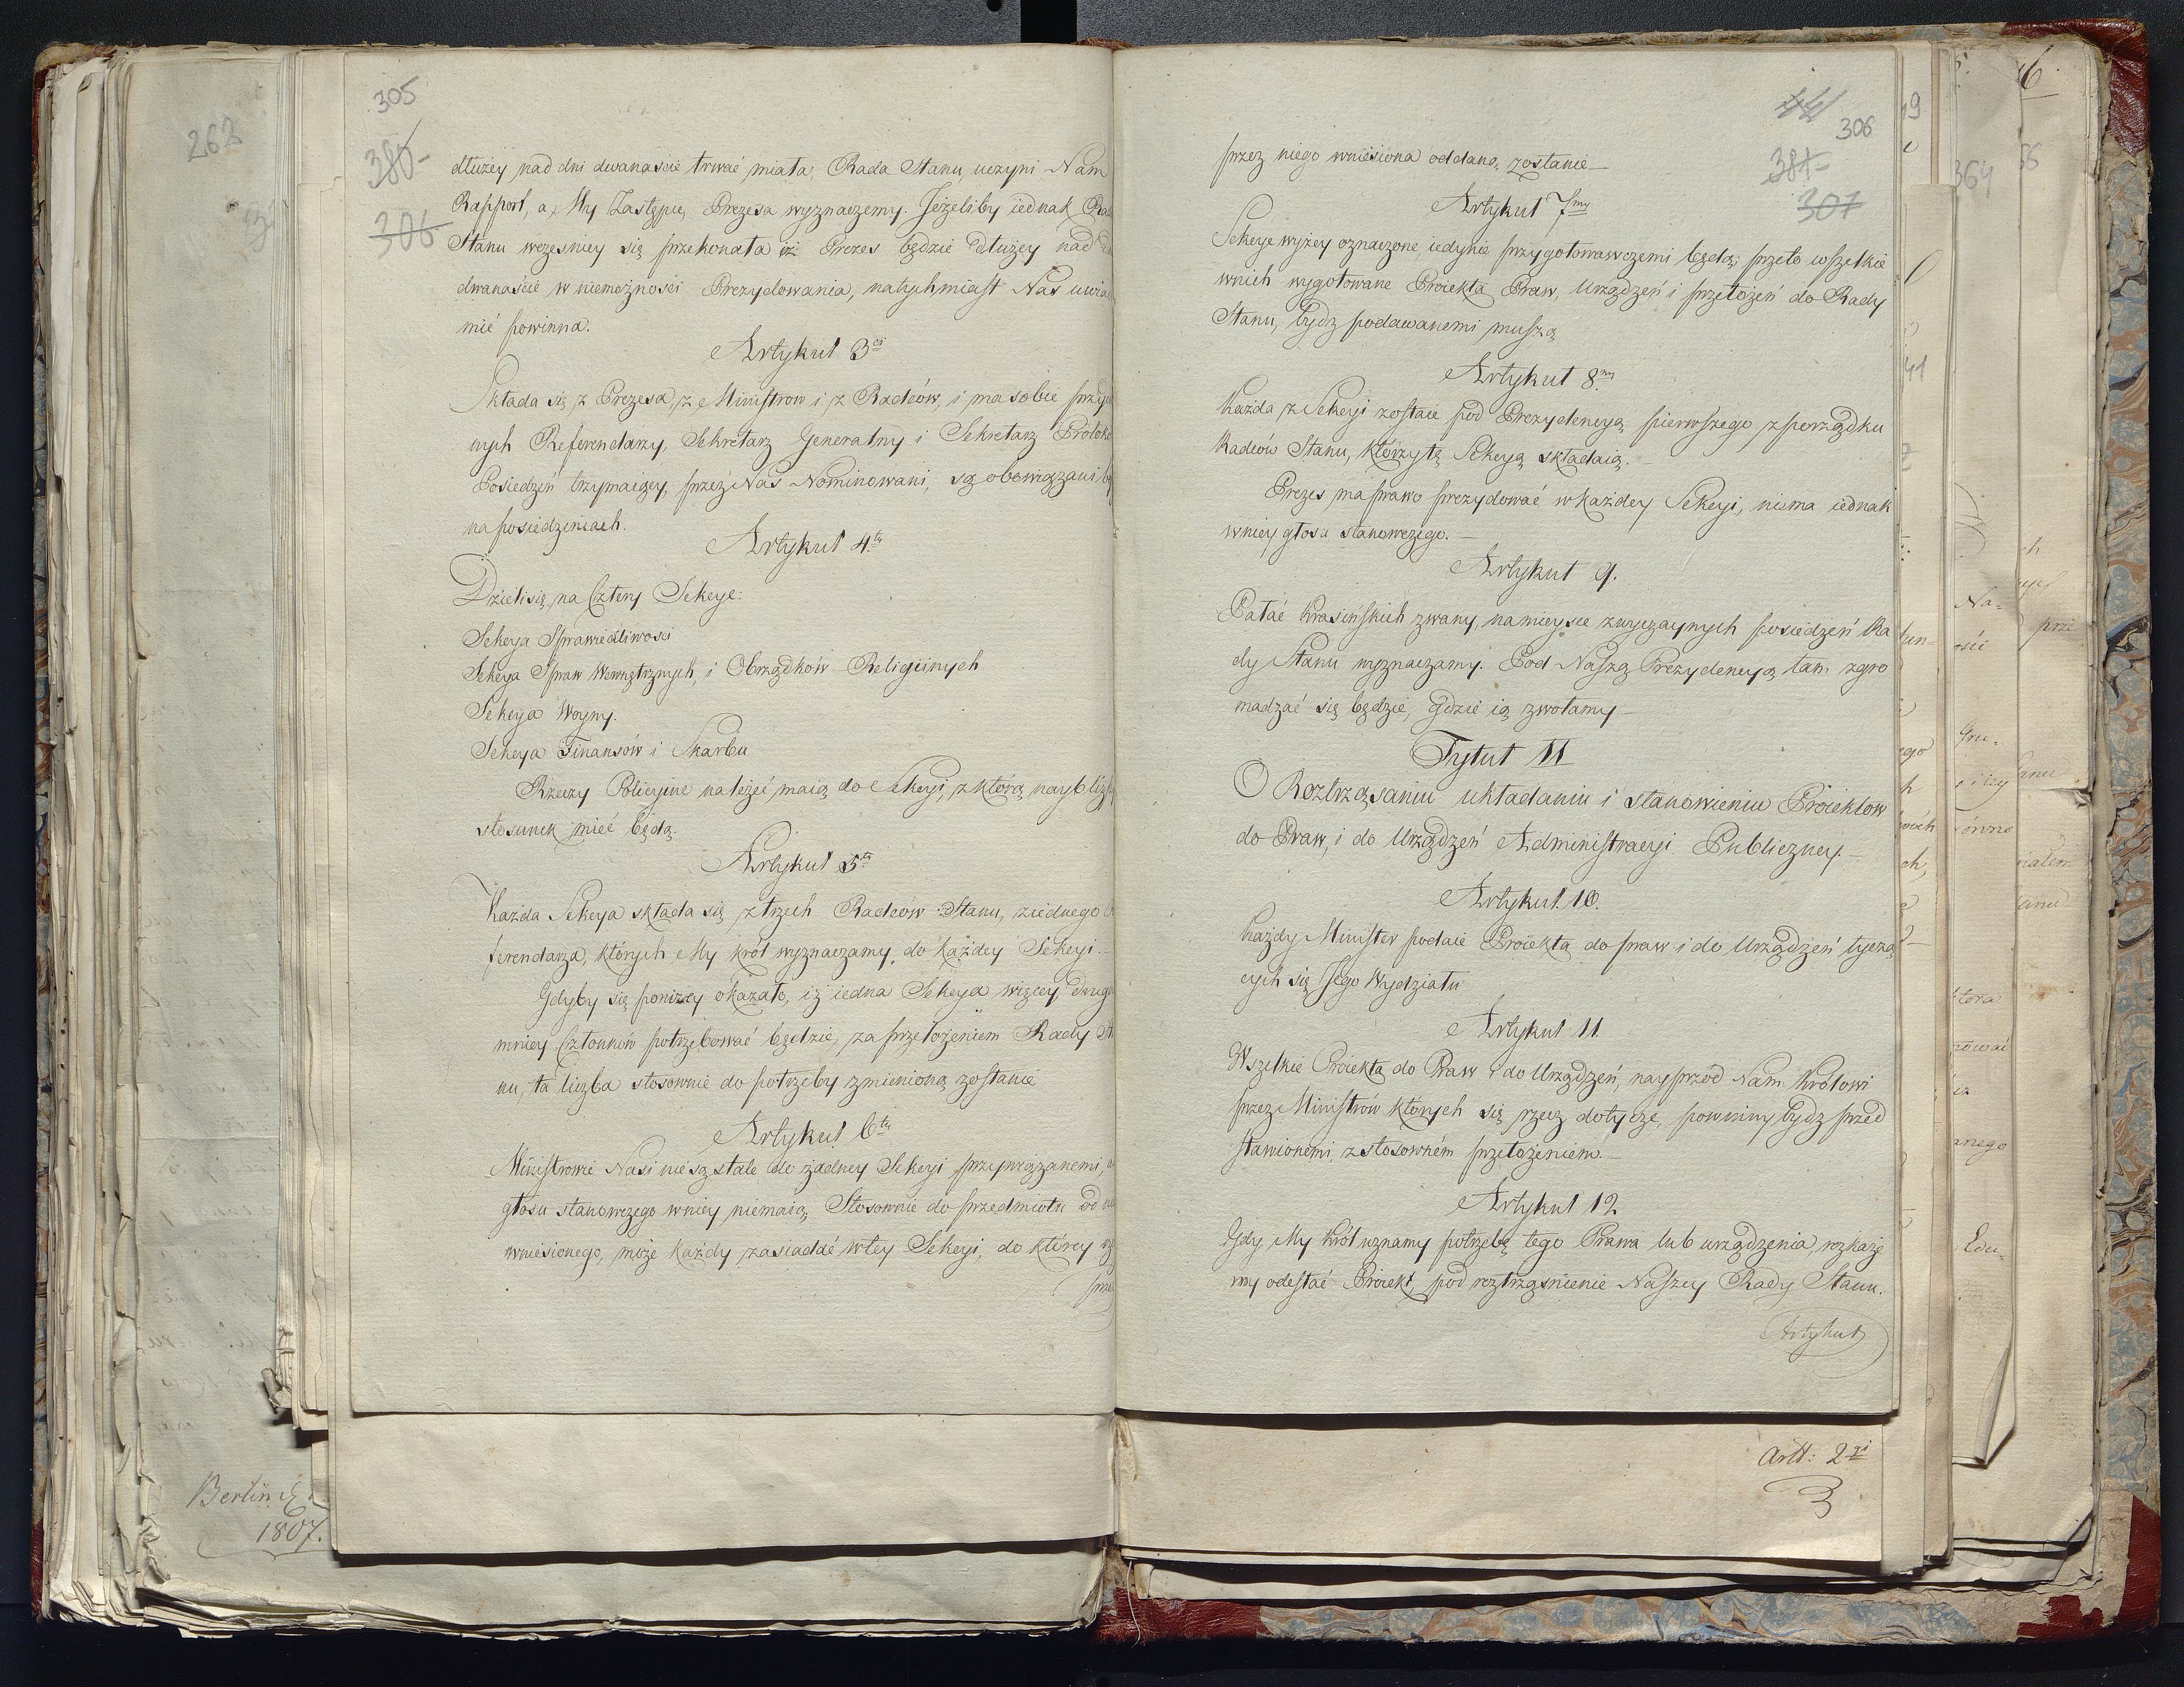 305
380
306
dłużey nad dni dwanaście trwać miała, Rada Stanu, uczyni Nam
Rapport, a My Zastępcę Prezesa wyznaczemy. Jeżeliby iednak
Stanu wcześniey się przekonała iż Prezes będzie dłużey nad
dwanaście w niemożności Prezydowania, natychmiast Nas uwia
mić powinna.
Artykuł 3ci
Składa się z Prezesa, z Ministrow i z Radców, i ma sobie przy
nych Referendarzy, Sekretarz Generalny i Sekretarz Protok
Posiedzeń trzymaiący, przez Nas Nominowani, są obowiązani
na posiedzeniach.
Artykuł 4ty
Dzieli się na Cztery Sekcye:
Sekcya Sprawiedliwosci
Sekcya Spraw Wewnętrznych, i Obrządków Religiinych
Sekcya Woyny.
Sekcya Finansów i Skarbu
Rzeczy Policyine należeć maią do Sekcyi, z którą naybliż
stosunek mieć będą.
Artykuł 5ty
Każda Sekcya składa się z trzech Radców Stanu, z iednego
ferendarza, których My król wyznaczamy, do każdey Sekcyi.
Gdyby się poniżey okazało, iż iedna Sekcya więcey, drug
mniey Członków potrzebować będzie, za przełożeniem Rady
nu, ta liczba stosownie do potrzeby zmienioną zostanie
Artykuł 6ty
Ministrowie Nasi nie są stale do żadney Sekcyi przywiązanemi,
głosu stanowczego w niey niemaią, Stosownie do przedmiotu od
wniesionego, może każdy zasiadać w tey Sekcyi, do którey
prze
306
381
307
przez niego wniesiona oddana, zostanie
Artykuł 7my
Sekcye wyżey oznaczone, iedynie przygotowawczemi będą; przeto wszelkie
w nich wygotowane Proiekta Praw, Urządzeń i przełożeń do Rady
Stanu, bydź podawanemi muszą
Artykuł 8my
Każda z Sekcyi zostaie pod Prezydencyą pierwszego z porządku
Radców Stanu, którzy tę Sekcyą składaią.
Prezes ma prawo prezydować w każdey Sekcyi, niema iednak
w niey głosu stanowczego.
Artykuł 9.
Pałac Krasińskich zwany, na mieysce zwyczaynych posiedzeń Ra
dy Stanu wyznaczamy. Pod Naszą Prezydencyą tam zgro
madzać się będzie, gdzie ią zwołamy
Tytuł II
O Roztrząsaniu układaniu i stanowieniu Proiektow
do Praw, i do Urządzeń Administracyi Publiczney.
Artykuł. 10.
Każdy Minister podaie Proiekta do praw i do Urządzeń tycza
cych się Jego Wydziału
Artykuł 11.
Wszelkie Proiekta do Praw i do Urządzeń, nayprzód Nam Królowi
przez Ministrów których się rzecz dotycze, powinny bydź przed
stawionemi z stosowném przełożeniem.
Artykuł 12
Gdy My Król uznamy potrzebę tego Prawa lub urządzenia, rozkaże
my odesłać Proiekt pod roztrząśnienie Naszey Rady Stanu.
Artykuł
Artt: 2gi
262
Berlin
1807.
364